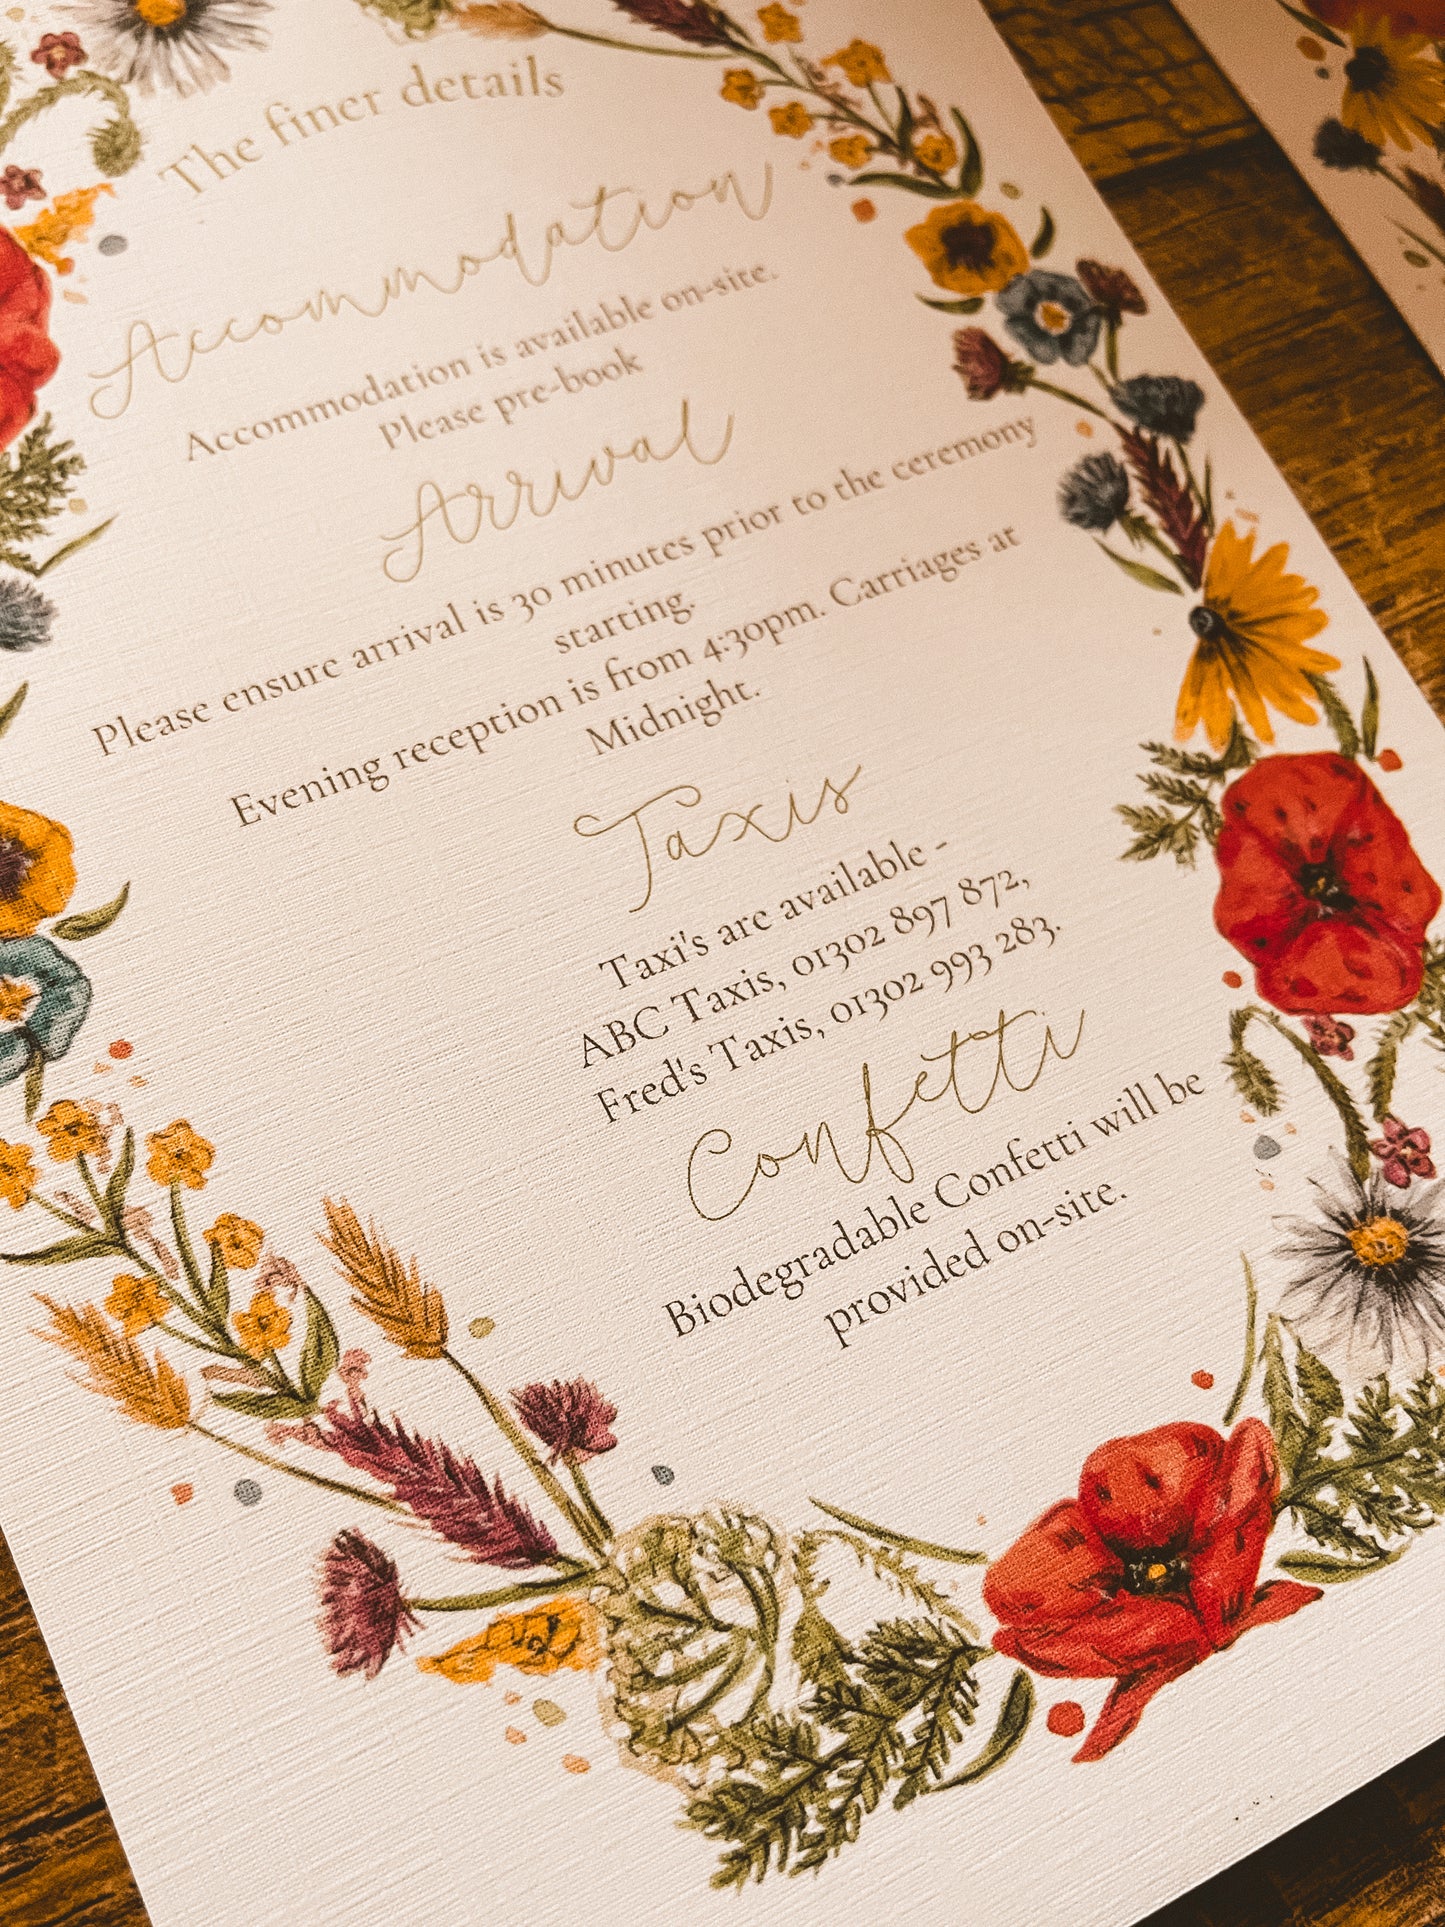 The finer details
Accommodation
Accommodation is available on-site.
Please pre-book
Arrival
Please ensure arrival is 30 minutes prior to the ceremony
starting.
Evening reception is from 4:30pm. Carriages at
Midnight.
Taxis
Taxi's are available -
ABC Taxis, 01302 897 872,
Fred's Taxis, 01302 993 283.
Confetti
Biodegradable Confetti will be
provided on-site.